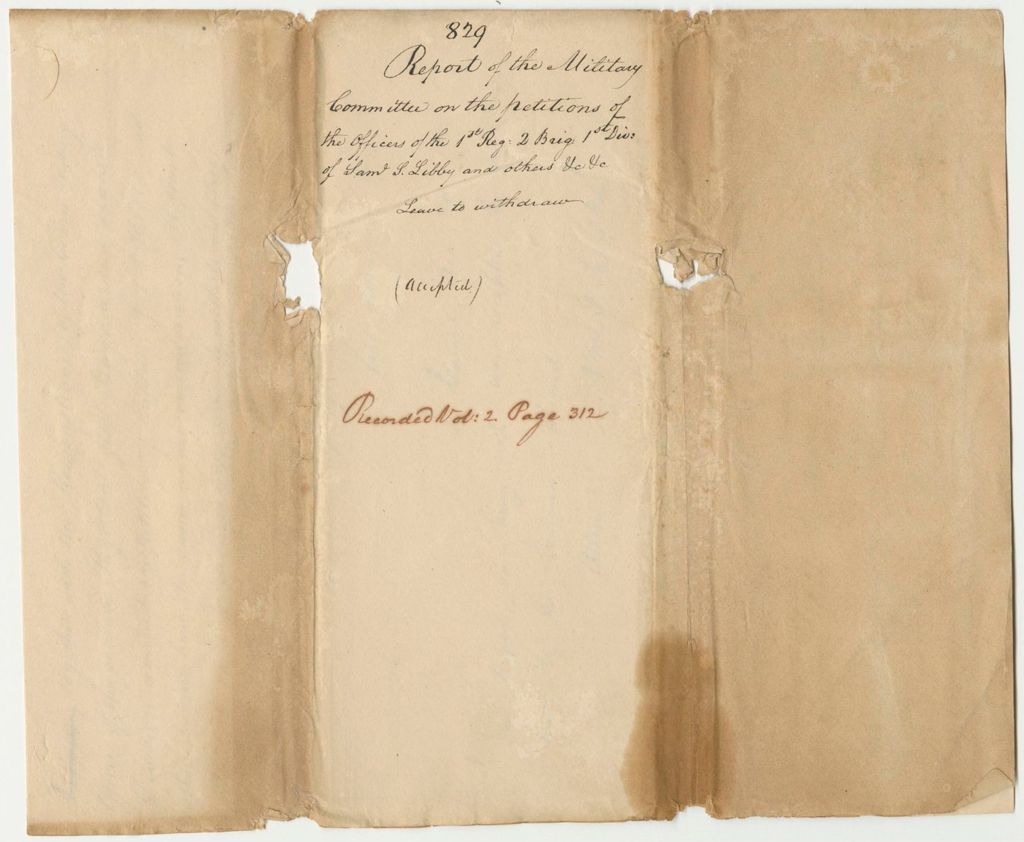 829
Report of the Military
Committee on the petitions of
the Officers of the 1st Reg. 2 Brig 1st Div:
of Saml S. Libby and others &c &c
Leave to withdraw
(Accepted)
Recorded Vol: 2. Page 312